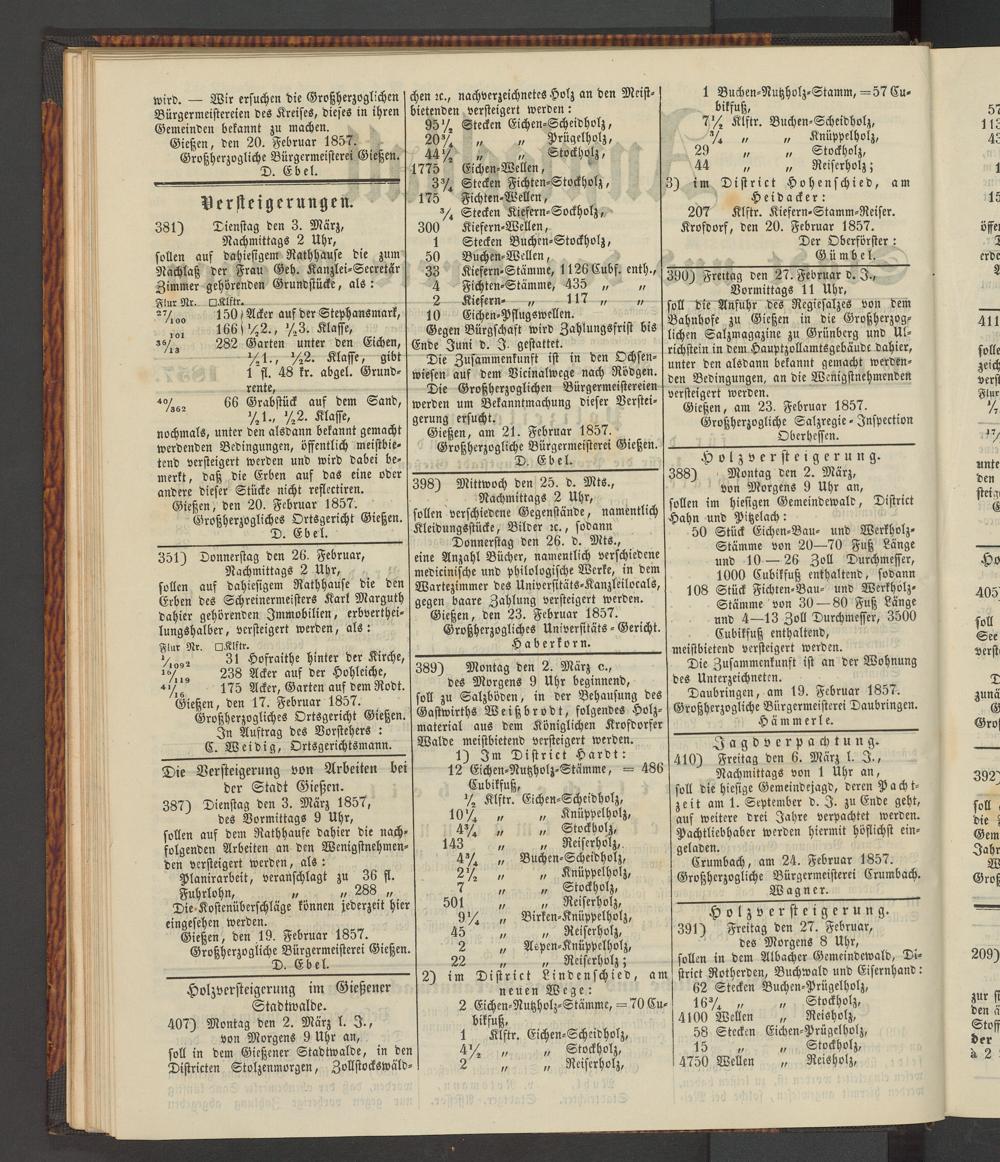 wird. — Wir ersuchen die Großherzoglichen
Bürgermeistereien des Kreises, dieses in ihren
Gemeinden bekannt zu machen.
Gießen, den 20. Februar 1857.
Großherzogliche Bürgermeisterei Gießen.
D. Ebel.
Versteigerungen.
381) Dienstag den 3. März,
Nachmittags 2 Uhr,
sollen auf dahiesigem Rathhause die zum
Nachlaß der Frau Geh. Kanzlei-Secretär
Zimmer gehörenden Grundstücke, als:
Flur Nr. □Klftr.
27/100 150 Acker auf der Stephansmark,
101 166 1/2 2., 1/2 3. Klasse,
36/13 282 Garten unter den Eichen,
1/2 1., 1/2 2. Klasse, gibt
1 fl. 48 kr. abgel. Grund-
rente,
40/362 66 Grabstück auf dem Sand,
1/2 1., 1/2 2. Klasse,
nochmals, unter den alsdann bekannt gemacht
werdenden Bedingungen, öffentlich meistbie-
tend versteigert werden und wird dabei be-
merkt, daß die Erben auf das eine oder
andere dieser Stücke nicht reflectiren.
Gießen, den 20. Februar 1857.
Großherzogliches Ortsgericht Gießen.
D. Ebel.
351) Donnerstag den 26. Februar,
Nachmittags 2 Uhr,
sollen auf dahiesigem Rathhause die den
Erben des Schreinermeisters Karl Marguth
dahier gehörenden Immobilien, erbverthei-
lungshalber, versteigert werden, als:
Flur Nr. □Klftr.
1/1092 31 Hofraithe hinter der Kirche,
16/119 238 Acker auf der Hohleiche,
41/16 175 Acker, Garten auf dem Rodt.
Gießen, den 17. Februar 1857.
Großherzogliches Ortsgericht Gießen.
In Auftrag des Vorstehers:
C. Weidig, Ortsgerichtsmann.
Die Versteigerung von Arbeiten bei
der Stadt Gießen.
387) Dienstag den 3. März 1857,
des Vormittags 9 Uhr,
sollen auf dem Rathhause dahier die nach-
folgenden Arbeiten an den Wenigstnehmen-
den versteigert werden, als:
Planirarbeit, veranschlagt zu 36 fl.
Fuhrlohn, „ „ 288 „
Die Kostenüberschläge können jederzeit hier
eingesehen werden.
Gießen, den 19. Februar 1857.
Großherzogliche Bürgermeisterei Gießen.
D. Ebel.
Holzversteigerung im Gießener
Stadtwalde.
407) Montag den 2. März l. J.,
von Morgens 9 Uhr an,
soll in dem Gießener Stadtwalde, in den
Districten Stolzenmorgen, Zollstockswäld-
chen ꝛc., nachverzeichnetes Holz an den Meist-
bietenden versteigert werden:
95 1/2 Stecken Eichen-Scheidholz,
20 3/4 „ „ Prügelholz,
44 1/2 „ „ Stockholz,
1775 Eichen-Wellen,
3 3/4 Stecken Fichten-Stockholz,
175 Fichten-Wellen,
3/4 Stecken Kiefern-Sockholz,
300 Kiefern-Wellen,
1 Stecken Buchen-Stockholz,
50 Buchen-Wellen,
33 Kiefern-Stämme, 1126 Cubf. enth.,
4 Fichten-Stämme, 435 „ „
2 Kiefern- „ 117 „ „
10 Eichen-Pflugswellen.
Gegen Bürgschaft wird Zahlungsfrist bis
Ende Juni d. J. gestattet.
Die Zusammenkunft ist in den Ochsen-
wiesen auf dem Vicinalwege nach Rödgen.
Die Großherzoglichen Bürgermeistereien
werden um Bekanntmachung dieser Verstei-
gerung ersucht.
Gießen, am 21. Februar 1857.
Großherzogliche Bürgermeisterei Gießen.
D. Ebel.
398) Mittwoch den 25. d. Mts.,
Nachmittags 2 Uhr,
sollen verschiedene Gegenstände, namentlich
Kleidungsstücke, Bilder ꝛc., sodann
Donnerstag den 26. d. Mts.,
eine Anzahl Bücher, namentlich verschiedene
medicinische und philologische Werke, in dem
Wartezimmer des Universitäts-Kanzleilocals,
gegen baare Zahlung versteigert werden.
Gießen, den 23. Februar 1857.
Großherzogliches Universitäts-Gericht.
Haberkorn.
389) Montag den 2. März c.,
des Morgens 9 Uhr beginnend,
soll zu Salzböden, in der Behausung des
Gastwirths Weißbrodt, folgendes Holz-
material aus dem Königlichen Krofdorfer
Walde meistbietend versteigert werden.
1) Im District Hardt:
12 Eichen-Nutzholz-Stämme, = 486
Cubikfuß,
1/2 Klftr. Eichen-Scheidholz,
10 1/4 „ „ Knüppelholz,
4 3/4 „ „ Stockholz,
143 „ „ Reiserholz,
4 3/4 „ Buchen-Scheidholz,
2 1/2 „ „ Knüppelholz,
7 „ „ Stockholz,
501 „ „ Reiserholz,
9 1/4 „ Birken-Knüppelholz,
45 „ „ Reiserholz,
2 „ Aspen-Knüppelholz,
22 „ „ Reiserholz;
2) im District Lindenschied, am
neuen Wege:
2 Eichen-Nutzholz-Stämme, = 70 Cu-
bikfuß,
1 Klftr. Eichen-Scheidholz,
4 1/2 „ „ Stockholz,
2 „ „ Reiserholz,
1 Buchen-Nutzholz-Stamm, = 57 Cu-
bikfuß,
7 1/2 Klftr. Buchen-Scheidholz,
3/4 „ „ Knüppelholz,
29 „ „ Stockholz,
44 „ „ Reiserholz;
3) im District Hohenschied, am
Heidacker:
207 Klftr. Kiefern-Stamm-Reiser.
Krofdorf, den 20. Februar 1857.
Der Oberförster:
Gümbel.
390) Freitag den 27. Februar d. J.,
Vormittags 11 Uhr,
soll die Anfuhr des Regiesalzes von dem
Bahnhofe zu Gießen in die Großherzog-
lichen Salzmagazine zu Grünberg und Ul-
richstein in dem Hauptzollamtsgebäude dahier,
unter den alsdann bekannt gemacht werden-
den Bedingungen, an die Wenigstnehmenden
versteigert werden.
Gießen, am 23. Februar 1857.
Großherzogliche Salzregie-Inspection
Oberhessen.
Holzversteigerung.
388) Montag den 2. März,
von Morgens 9 Uhr an,
sollen im hiesigen Gemeindewald, District
Hahn und Pitzelach:
50 Stück Eichen-Bau- und Werkholz-
Stämme von 20—70 Fuß Länge
und 10—26 Zoll Durchmesser,
1000 Cubikfuß enthaltend, sodann
108 Stück Fichten-Bau- und Werkholz-
Stämme von 30—80 Fuß Länge
und 4—13 Zoll Durchmesser, 3500
Cubikfuß enthaltend,
meistbietend versteigert werden.
Die Zusammenkunft ist an der Wohnung
des Unterzeichneten.
Daubringen, am 19. Februar 1857.
Großherzogliche Bürgermeisterei Daubringen.
Hämmerle.
Jagdverpachtung.
410) Freitag den 6. März l. J.,
Nachmittags von 1 Uhr an,
soll die hiesige Gemeindejagd, deren Pacht-
zeit am 1. September d. J. zu Ende geht,
auf weitere drei Jahre verpachtet werden.
Pachtliebhaber werden hiermit höflichst ein-
geladen.
Crumbach, am 24. Februar 1857.
Großherzogliche Bürgermeisterei Crumbach.
Wagner.
Holzversteigerung.
391) Freitag den 27. Februar,
des Morgens 8 Uhr,
sollen in dem Albacher Gemeindewald, Di-
strict Rotherden, Buchwald und Eisernhand:
62 Stecken Buchen-Prügelholz,
16 3/4 „ „ Stockholz,
4100 Wellen „ Reisholz,
58 Stecken Eichen-Prügelholz,
15 „ „ Stockholz,
4750 Wellen „ Reisholz,